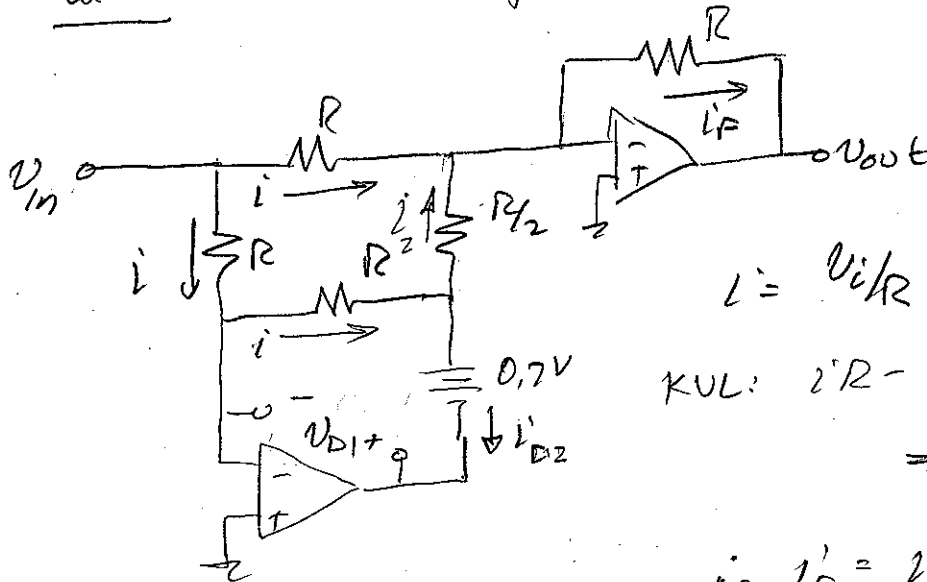 R
R
i_F
v_in
v_out
i
i_2
R/2
i
R
R
i = v_i/R
i
0,7V
KVL: iR -
v_D1 +
i_D2
-
+
=